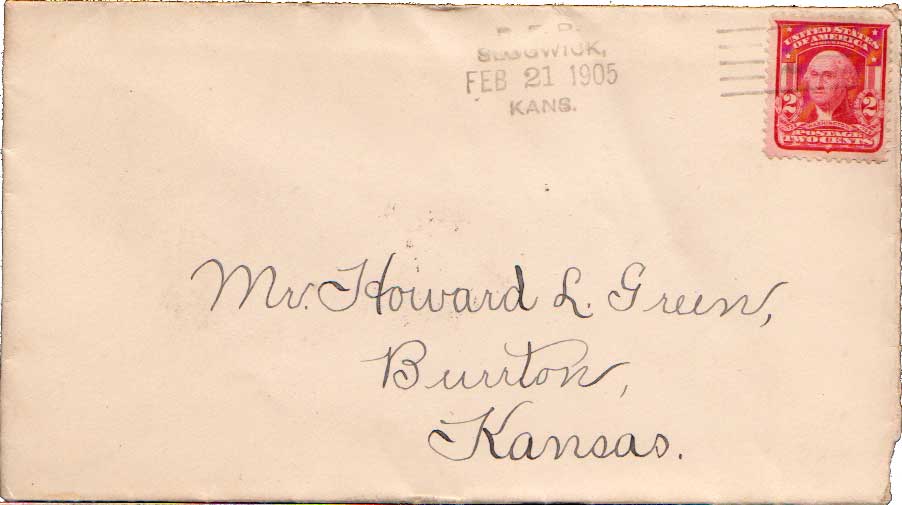 R. F. D.
SEDGWICK,
FEB 21 1905
KANS.
UNITED STATES
OF AMERICA
2 2
POSTAGE
TWO CENTS
Mr. Howard L. Green,
Burrton,
Kansas.